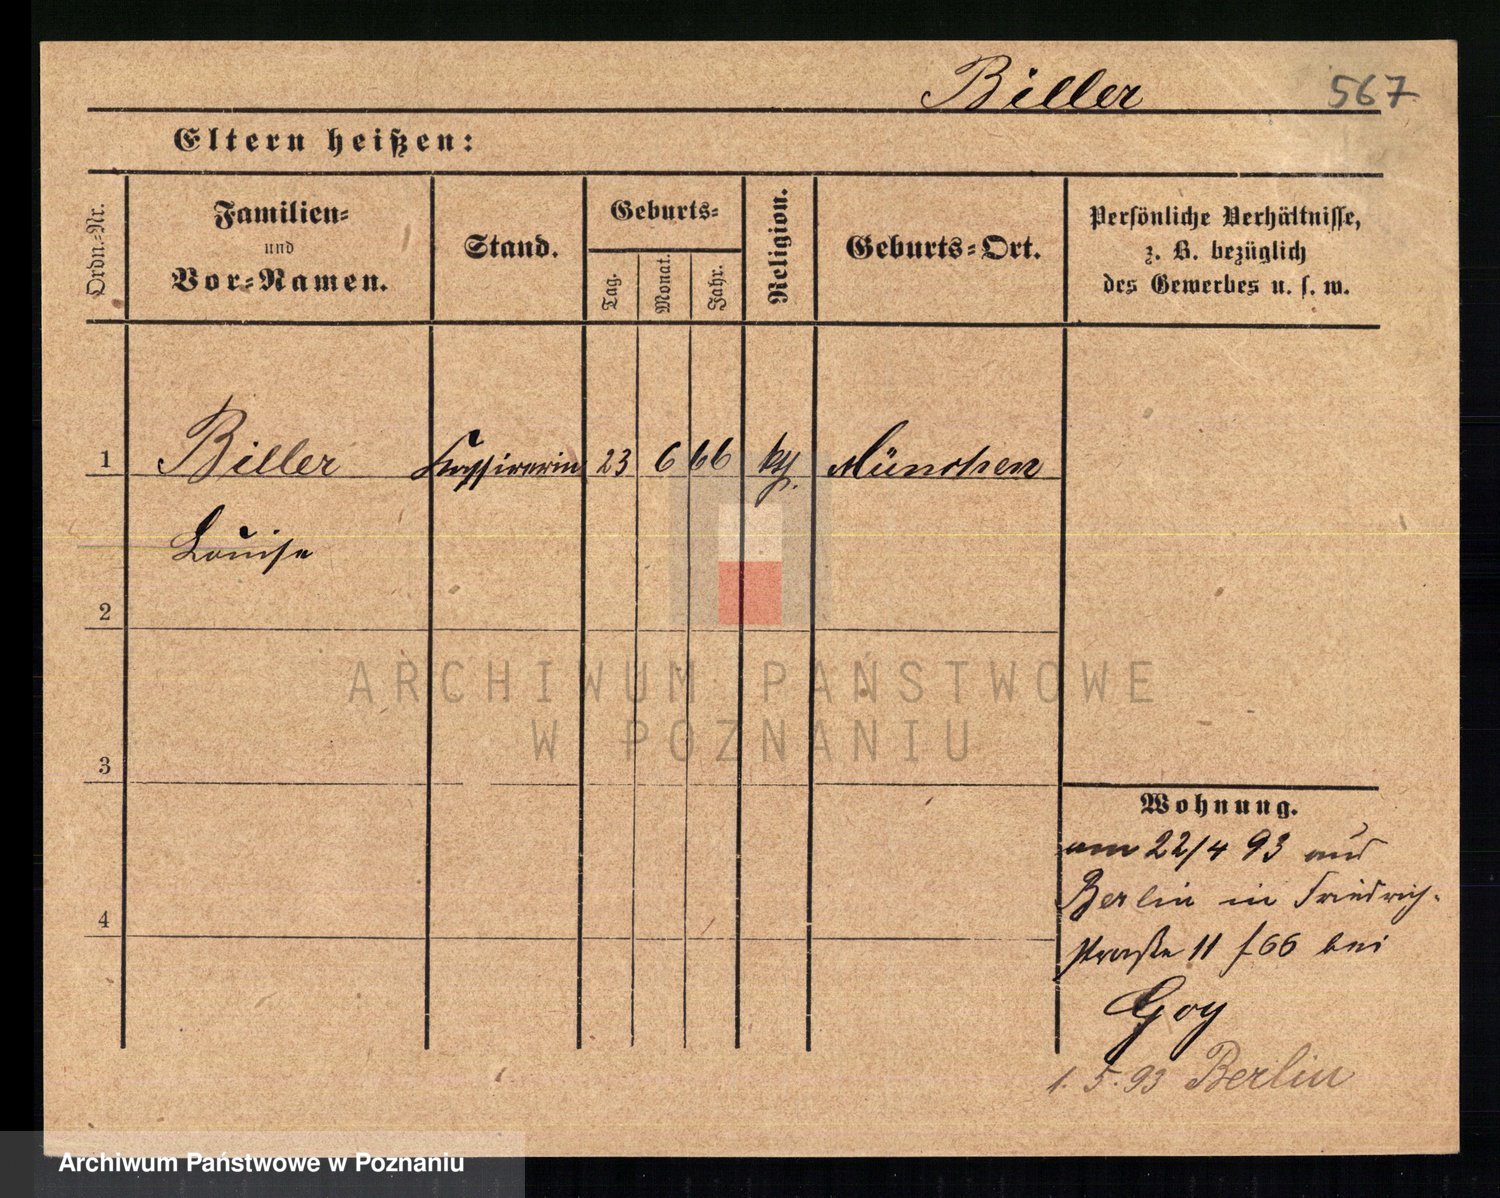 Biller 567
Eltern heißen:
Ordn.-Nr.
Familien-
und
Vor-Namen.
Stand.
Geburts-
Tag.
Monat.
Jahr.
Religion.
Geburts-Ort.
Persönliche Verhältnisse,
z. B. bezüglich
des Gewerbes u. s. w.
1 Biller Kassirerin 23 6 66 München
Louise
2
ARCHIWUM PAŃSTWOWE
W POZNANIU
3
Wohnung.
am 22/4 93 aus
Berlin in Friedrich-
straße 11 bei
4
Goy
1. 5. 93 Berlin
Archiwum Państwowe w Poznaniu